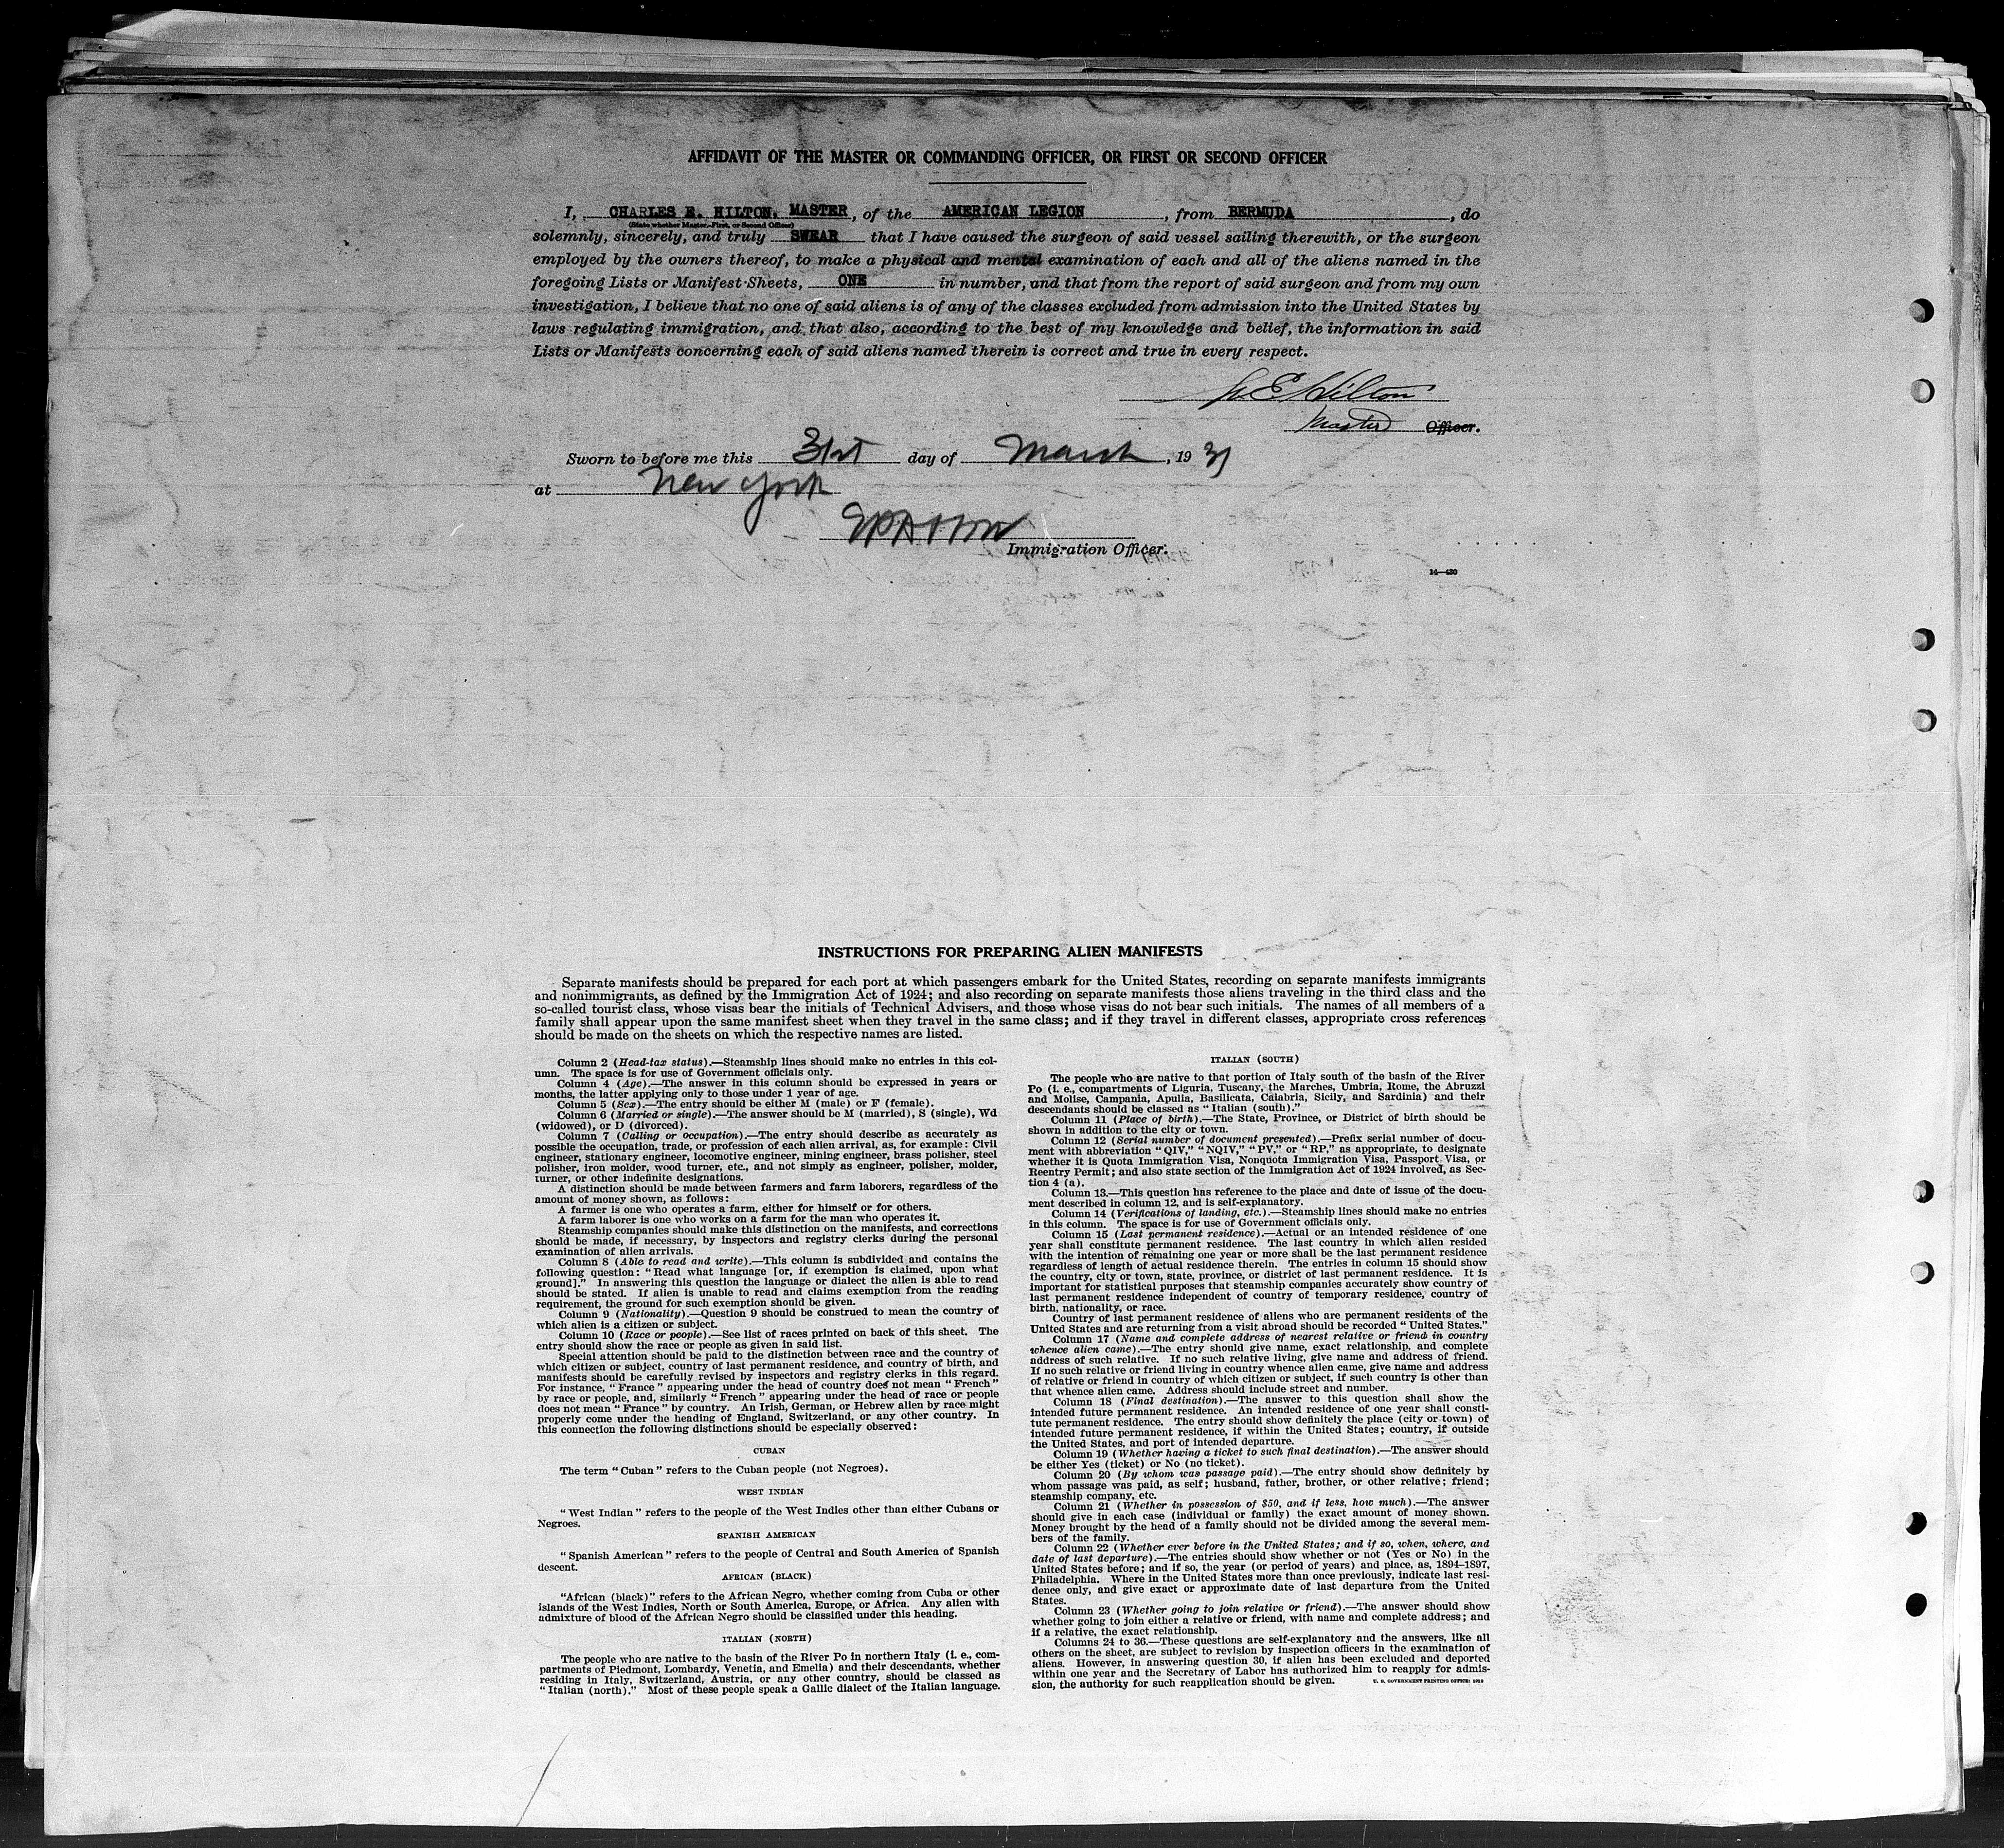 AFFIDAVIT OF THE MASTER OR COMMANDING OFFICER, OR FIRST OR SECOND OFFICER
I, CHARLES E. HILTON. MASTER, of the AMERICAN LEGION, from BERMUDA, do
(State whether Master, First, or Second Officer)
solemnly, sincerely, and truly SWEAR that I have caused the surgeon of said vessel sailing therewith, or the surgeon
employed by the owners thereof, to make a physical and mental examination of each and all of the aliens named in the
foregoing Lists or Manifest Sheets, ONE in number, and that from the report of said surgeon and from my own
investigation, I believe that no one of said aliens is of any of the classes excluded from admission into the United States by
laws regulating immigration, and that also, according to the best of my knowledge and belief, the information in said
Lists or Manifests concerning each of said aliens named therein is correct and true in every respect.
E Hilton
Master Officer.
Sworn to before me this 31st day of March, 1931
at New York
Immigration Officer.
14—430
INSTRUCTIONS FOR PREPARING ALIEN MANIFESTS
Separate manifests should be prepared for each port at which passengers embark for the United States, recording on separate manifests immigrants
and nonimmigrants, as defined by the Immigration Act of 1924; and also recording on separate manifests those aliens traveling in the third class and the
so-called tourist class, whose visas bear the initials of Technical Advisers, and those whose visas do not bear such initials. The names of all members of a
family shall appear upon the same manifest sheet when they travel in the same class; and if they travel in different classes, appropriate cross references
should be made on the sheets on which the respective names are listed.
Column 2 (Head-tax status).—Steamship lines should make no entries in this col-
umn. The space is for use of Government officials only.
Column 4 (Age).—The answer in this column should be expressed in years or
months, the latter applying only to those under 1 year of age.
Column 5 (Sex).—The entry should be either M (male) or F (female).
Column 6 (Married or single).—The answer should be M (married), S (single), Wd
(widowed), or D (divorced).
Column 7 (Calling or occupation).—The entry should describe as accurately as
possible the occupation, trade, or profession of each alien arrival, as, for example: Civil
engineer, stationary engineer, locomotive engineer, mining engineer, brass polisher, steel
polisher, iron molder, wood turner, etc., and not simply as engineer, polisher, molder,
turner, or other indefinite designations.
A distinction should be made between farmers and farm laborers, regardless of the
amount of money shown, as follows:
A farmer is one who operates a farm, either for himself or for others.
A farm laborer is one who works on a farm for the man who operates it.
Steamship companies should make this distinction on the manifests, and corrections
should be made, if necessary, by inspectors and registry clerks during the personal
examination of alien arrivals.
Column 8 (Able to read and write).—This column is subdivided and contains the
following question: "Read what language [or, if exemption is claimed, upon what
ground]." In answering this question the language or dialect the alien is able to read
should be stated. If alien is unable to read and claims exemption from the reading
requirement, the ground for such exemption should be given.
Column 9 (Nationality).—Question 9 should be construed to mean the country of
which alien is a citizen or subject.
Column 10 (Race or people).—See list of races printed on back of this sheet. The
entry should show the race or people as given in said list.
Special attention should be paid to the distinction between race and the country of
which citizen or subject, country of last permanent residence, and country of birth, and
manifests should be carefully revised by inspectors and registry clerks in this regard.
For instance, "France" appearing under the head of country does not mean "French"
by race or people, and, similarly "French" appearing under the head of race or people
does not mean "France" by country. An Irish, German, or Hebrew alien by race might
properly come under the heading of England, Switzerland, or any other country. In
this connection the following distinctions should be especially observed:
CUBAN
The term "Cuban" refers to the Cuban people (not Negroes).
WEST INDIAN
"West Indian" refers to the people of the West Indies other than either Cubans or
Negroes.
SPANISH AMERICAN
"Spanish American" refers to the people of Central and South America of Spanish
descent.
AFRICAN (BLACK)
"African (black)" refers to the African Negro, whether coming from Cuba or other
islands of the West Indies, North or South America, Europe, or Africa. Any alien with
admixture of blood of the African Negro should be classified under this heading.
ITALIAN (NORTH)
The people who are native to the basin of the River Po in northern Italy (i. e., com-
partments of Piedmont, Lombardy, Venetia, and Emelia) and their descendants, whether
residing in Italy, Switzerland, Austria, or any other country, should be classed as
"Italian (north)." Most of these people speak a Gallic dialect of the Italian language.
ITALIAN (SOUTH)
The people who are native to that portion of Italy south of the basin of the River
Po (i. e., compartments of Liguria, Tuscany, the Marches, Umbria, Rome, the Abruzzi
and Molise, Campania, Apulia, Basilicata, Calabria, Sicily, and Sardinia) and their
descendants should be classed as "Italian (south)."
Column 11 (Place of birth).—The State, Province, or District of birth should be
shown in addition to the city or town.
Column 12 (Serial number of document presented).—Prefix serial number of docu-
ment with abbreviation "QIV," "NQIV," "PV," or "RP," as appropriate, to designate
whether it is Quota Immigration Visa, Nonquota Immigration Visa, Passport Visa, or
Reentry Permit; and also state section of the Immigration Act of 1924 involved, as Sec-
tion 4 (a).
Column 13.—This question has reference to the place and date of issue of the docu-
ment described in column 12, and is self-explanatory.
Column 14 (Verifications of landing, etc.).—Steamship lines should make no entries
in this column. The space is for use of Government officials only.
Column 15 (Last permanent residence).—Actual or an intended residence of one
year shall constitute permanent residence. The last country in which alien resided
with the intention of remaining one year or more shall be the last permanent residence
regardless of length of actual residence therein. The entries in column 15 should show
the country, city or town, state, province, or district of last permanent residence. It is
important for statistical purposes that steamship companies accurately show country of
last permanent residence independent of country of temporary residence, country of
birth, nationality, or race.
Country of last permanent residence of aliens who are permanent residents of the
United States and are returning from a visit abroad should be recorded "United States."
Column 17 (Name and complete address of nearest relative or friend in country
whence alien came).—The entry should give name, exact relationship, and complete
address of such relative. If no such relative living, give name and address of friend.
If no such relative or friend living in country whence alien came, give name and address
of relative or friend in country of which citizen or subject, if such country is other than
that whence alien came. Address should include street and number.
Column 18 (Final destination).—The answer to this question shall show the
intended future permanent residence. An intended residence of one year shall consti-
tute permanent residence. The entry should show definitely the place (city or town) of
intended future permanent residence, if within the United States; country, if outside
the United States, and port of intended departure.
Column 19 (Whether having a ticket to such final destination).—The answer should
be either Yes (ticket) or No (no ticket).
Column 20 (By whom was passage paid).—The entry should show definitely by
whom passage was paid, as self; husband, father, brother, or other relative; friend;
steamship company, etc.
Column 21 (Whether in possession of $50, and if less, how much).—The answer
should give in each case (individual or family) the exact amount of money shown.
Money brought by the head of a family should not be divided among the several mem-
bers of the family.
Column 22 (Whether ever before in the United States; and if so, when, where, and
date of last departure).—The entries should show whether or not (Yes or No) in the
United States before; and if so, the year (or period of years) and place, as, 1894–1897,
Philadelphia. Where in the United States more than once previously, indicate last resi-
dence only, and give exact or approximate date of last departure from the United
States.
Column 23 (Whether going to join relative or friend).—The answer should show
whether going to join either a relative or friend, with name and complete address; and
if a relative, the exact relationship.
Columns 24 to 36.—These questions are self-explanatory and the answers, like all
others on the sheet, are subject to revision by inspection officers in the examination of
aliens. However, in answering question 30, if alien has been excluded and deported
within one year and the Secretary of Labor has authorized him to reapply for admis-
sion, the authority for such reapplication should be given.
U. S. GOVERNMENT PRINTING OFFICE: